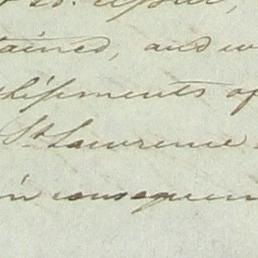 tained, and w
shipments of
St. Lawrence
in consequen